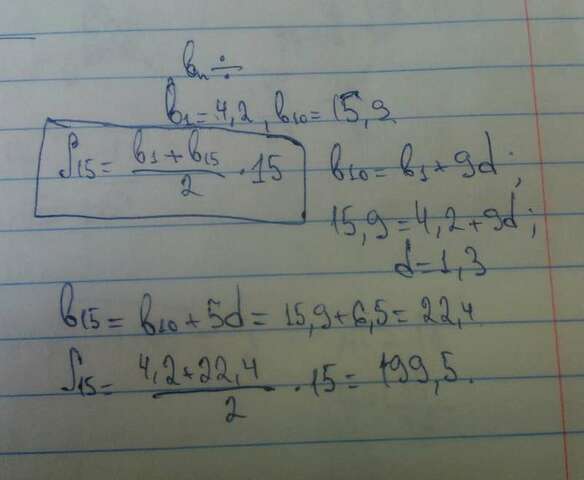 bₙ ÷
b₁ = 4,2, b₁₀ = 15,9
S₁₅ = (b₁ + b₁₅)/2 · 15
b₁₀ = b₁ + 9d;
15,9 = 4,2 + 9d;
d = 1,3
b₁₅ = b₁₀ + 5d = 15,9 + 6,5 = 22,4
S₁₅ = (4,2 + 22,4)/2 · 15 = 199,5.